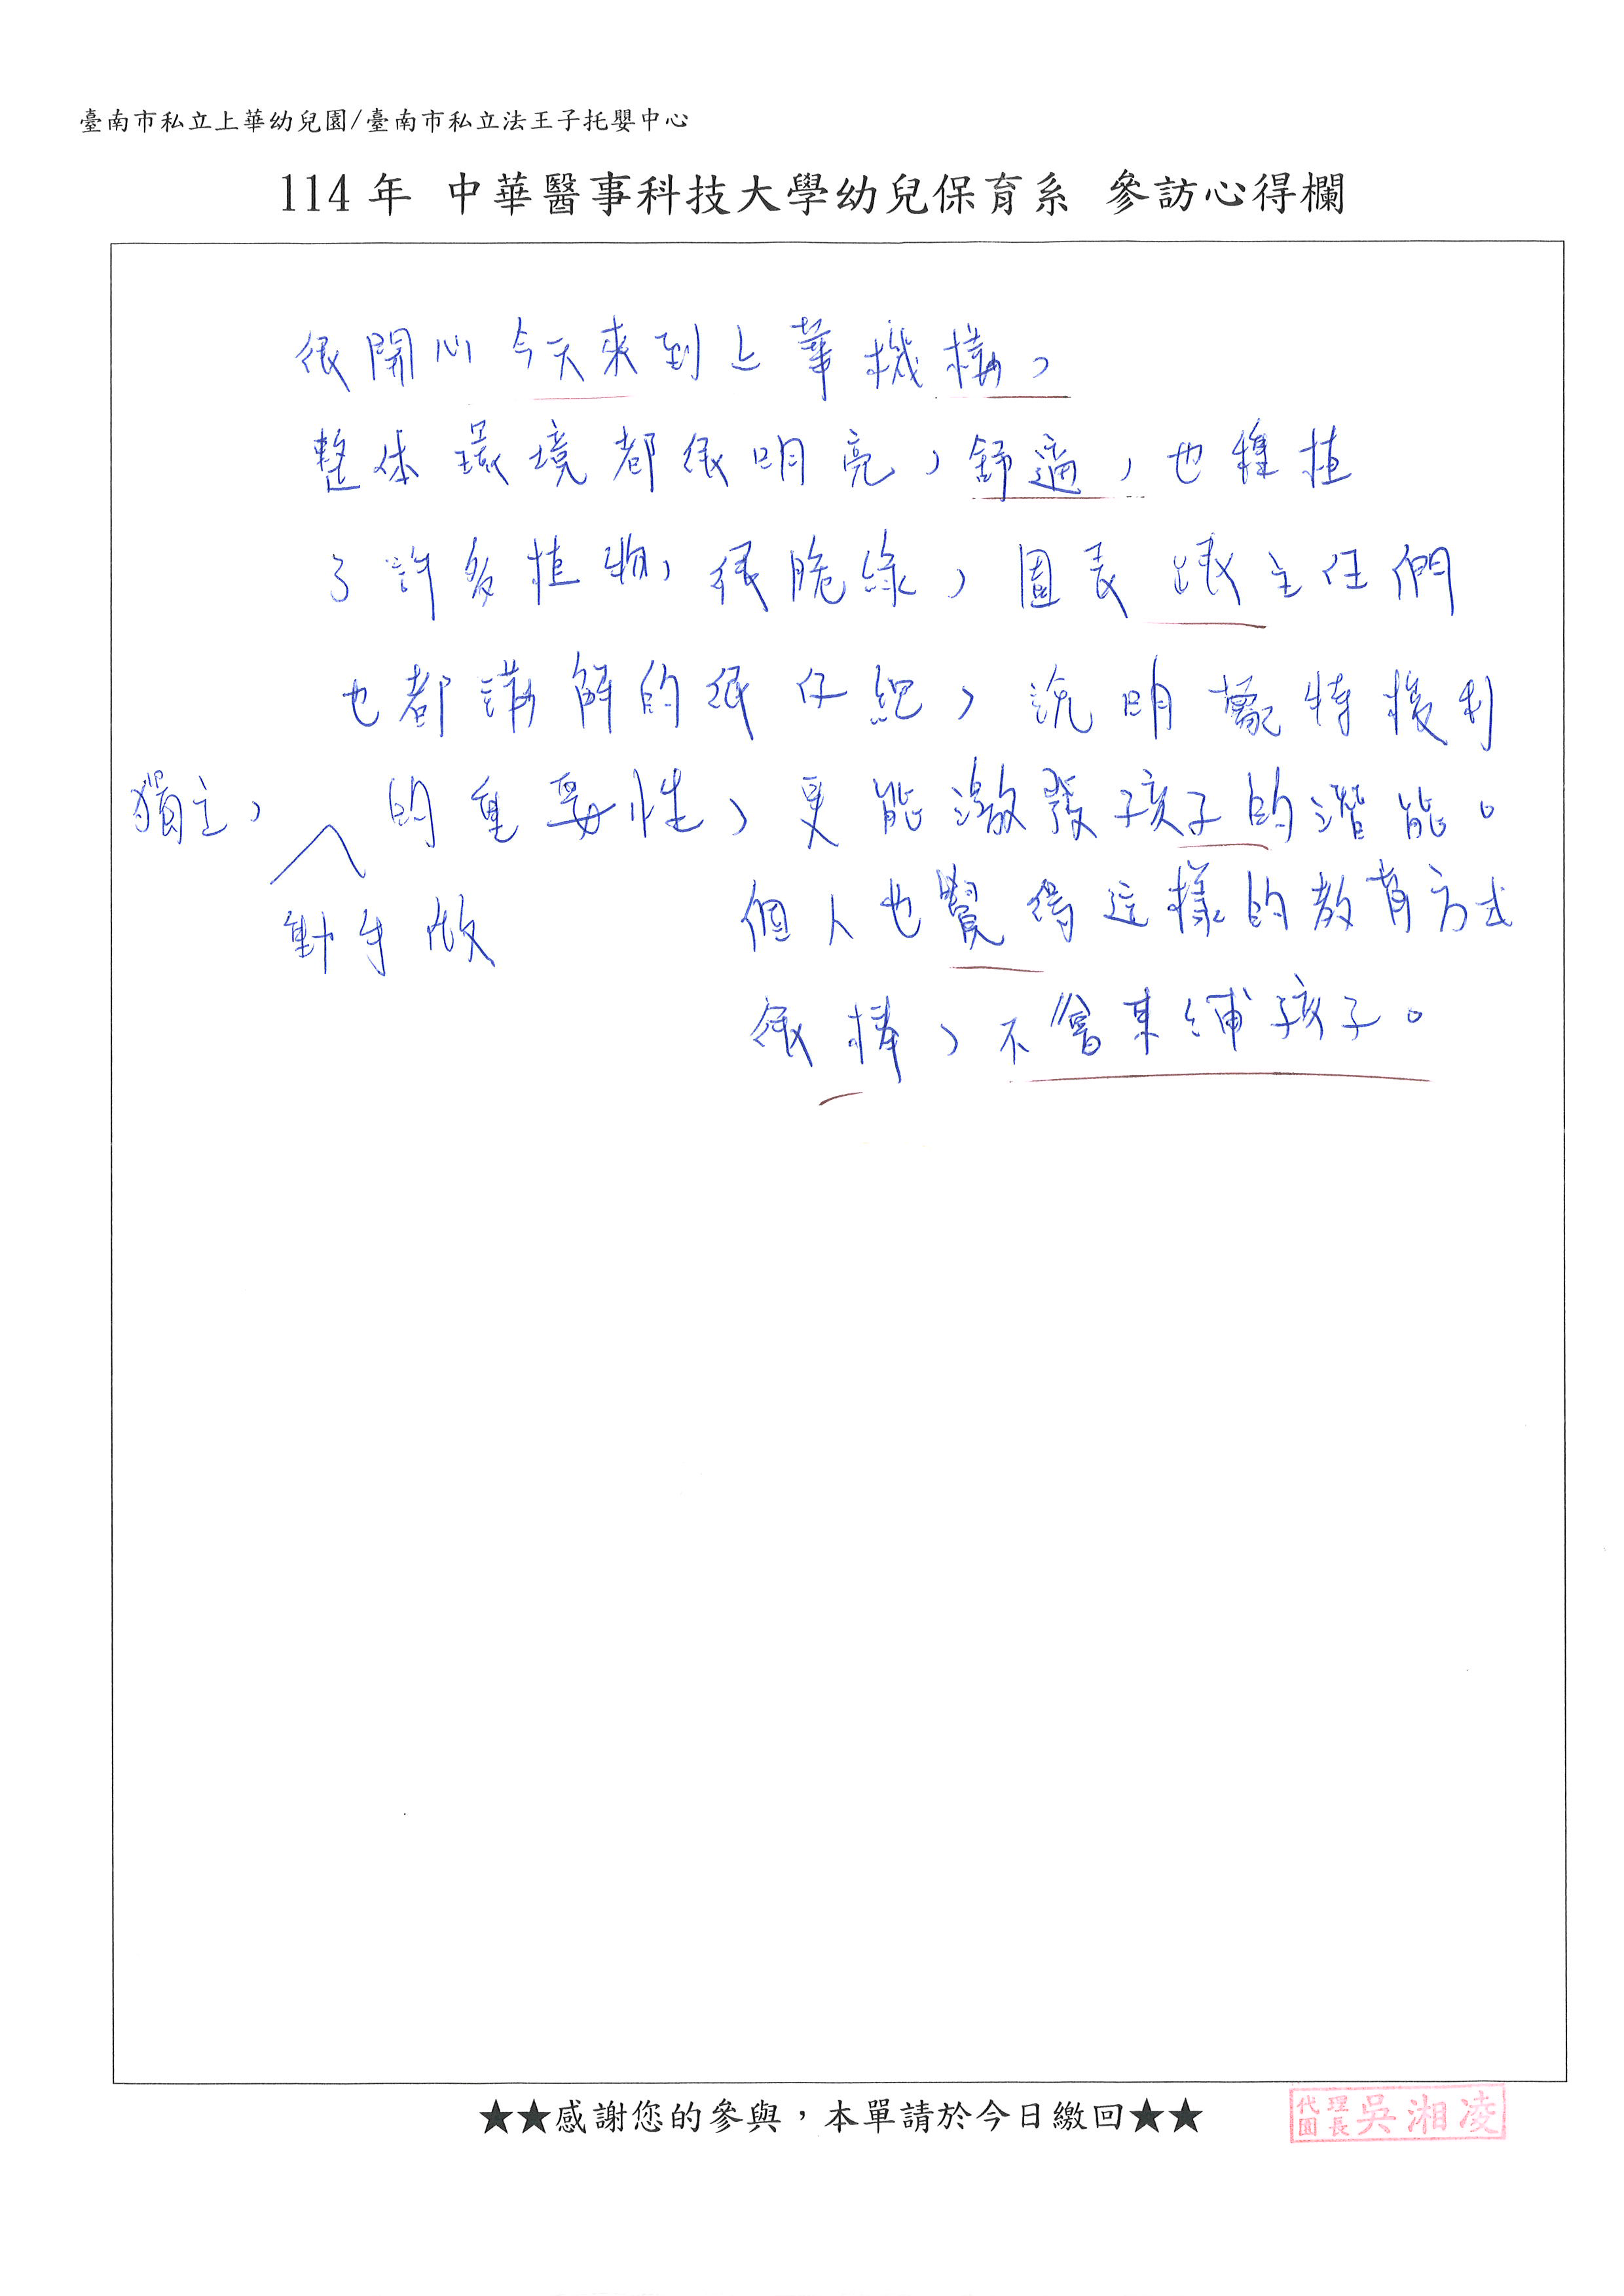 臺南市私立上華幼兒園/臺南市私立法王子托嬰中心
114 年 中華醫事科技大學幼兒保育系 參訪心得欄
很開心今天來到上華機構,
整体環境都很明亮,舒適,也種植
了許多植物,很脆綠,園長 跟主任們
也都講解的很仔細,說明蒙特梭利
獨立, 的重要性,更能激發孩子的潛能。
動手做
個人也覺得這樣的教育方式
很棒,不會束縛孩子。
★★感謝您的參與,本單請於今日繳回★★
代理園長 吳湘凌